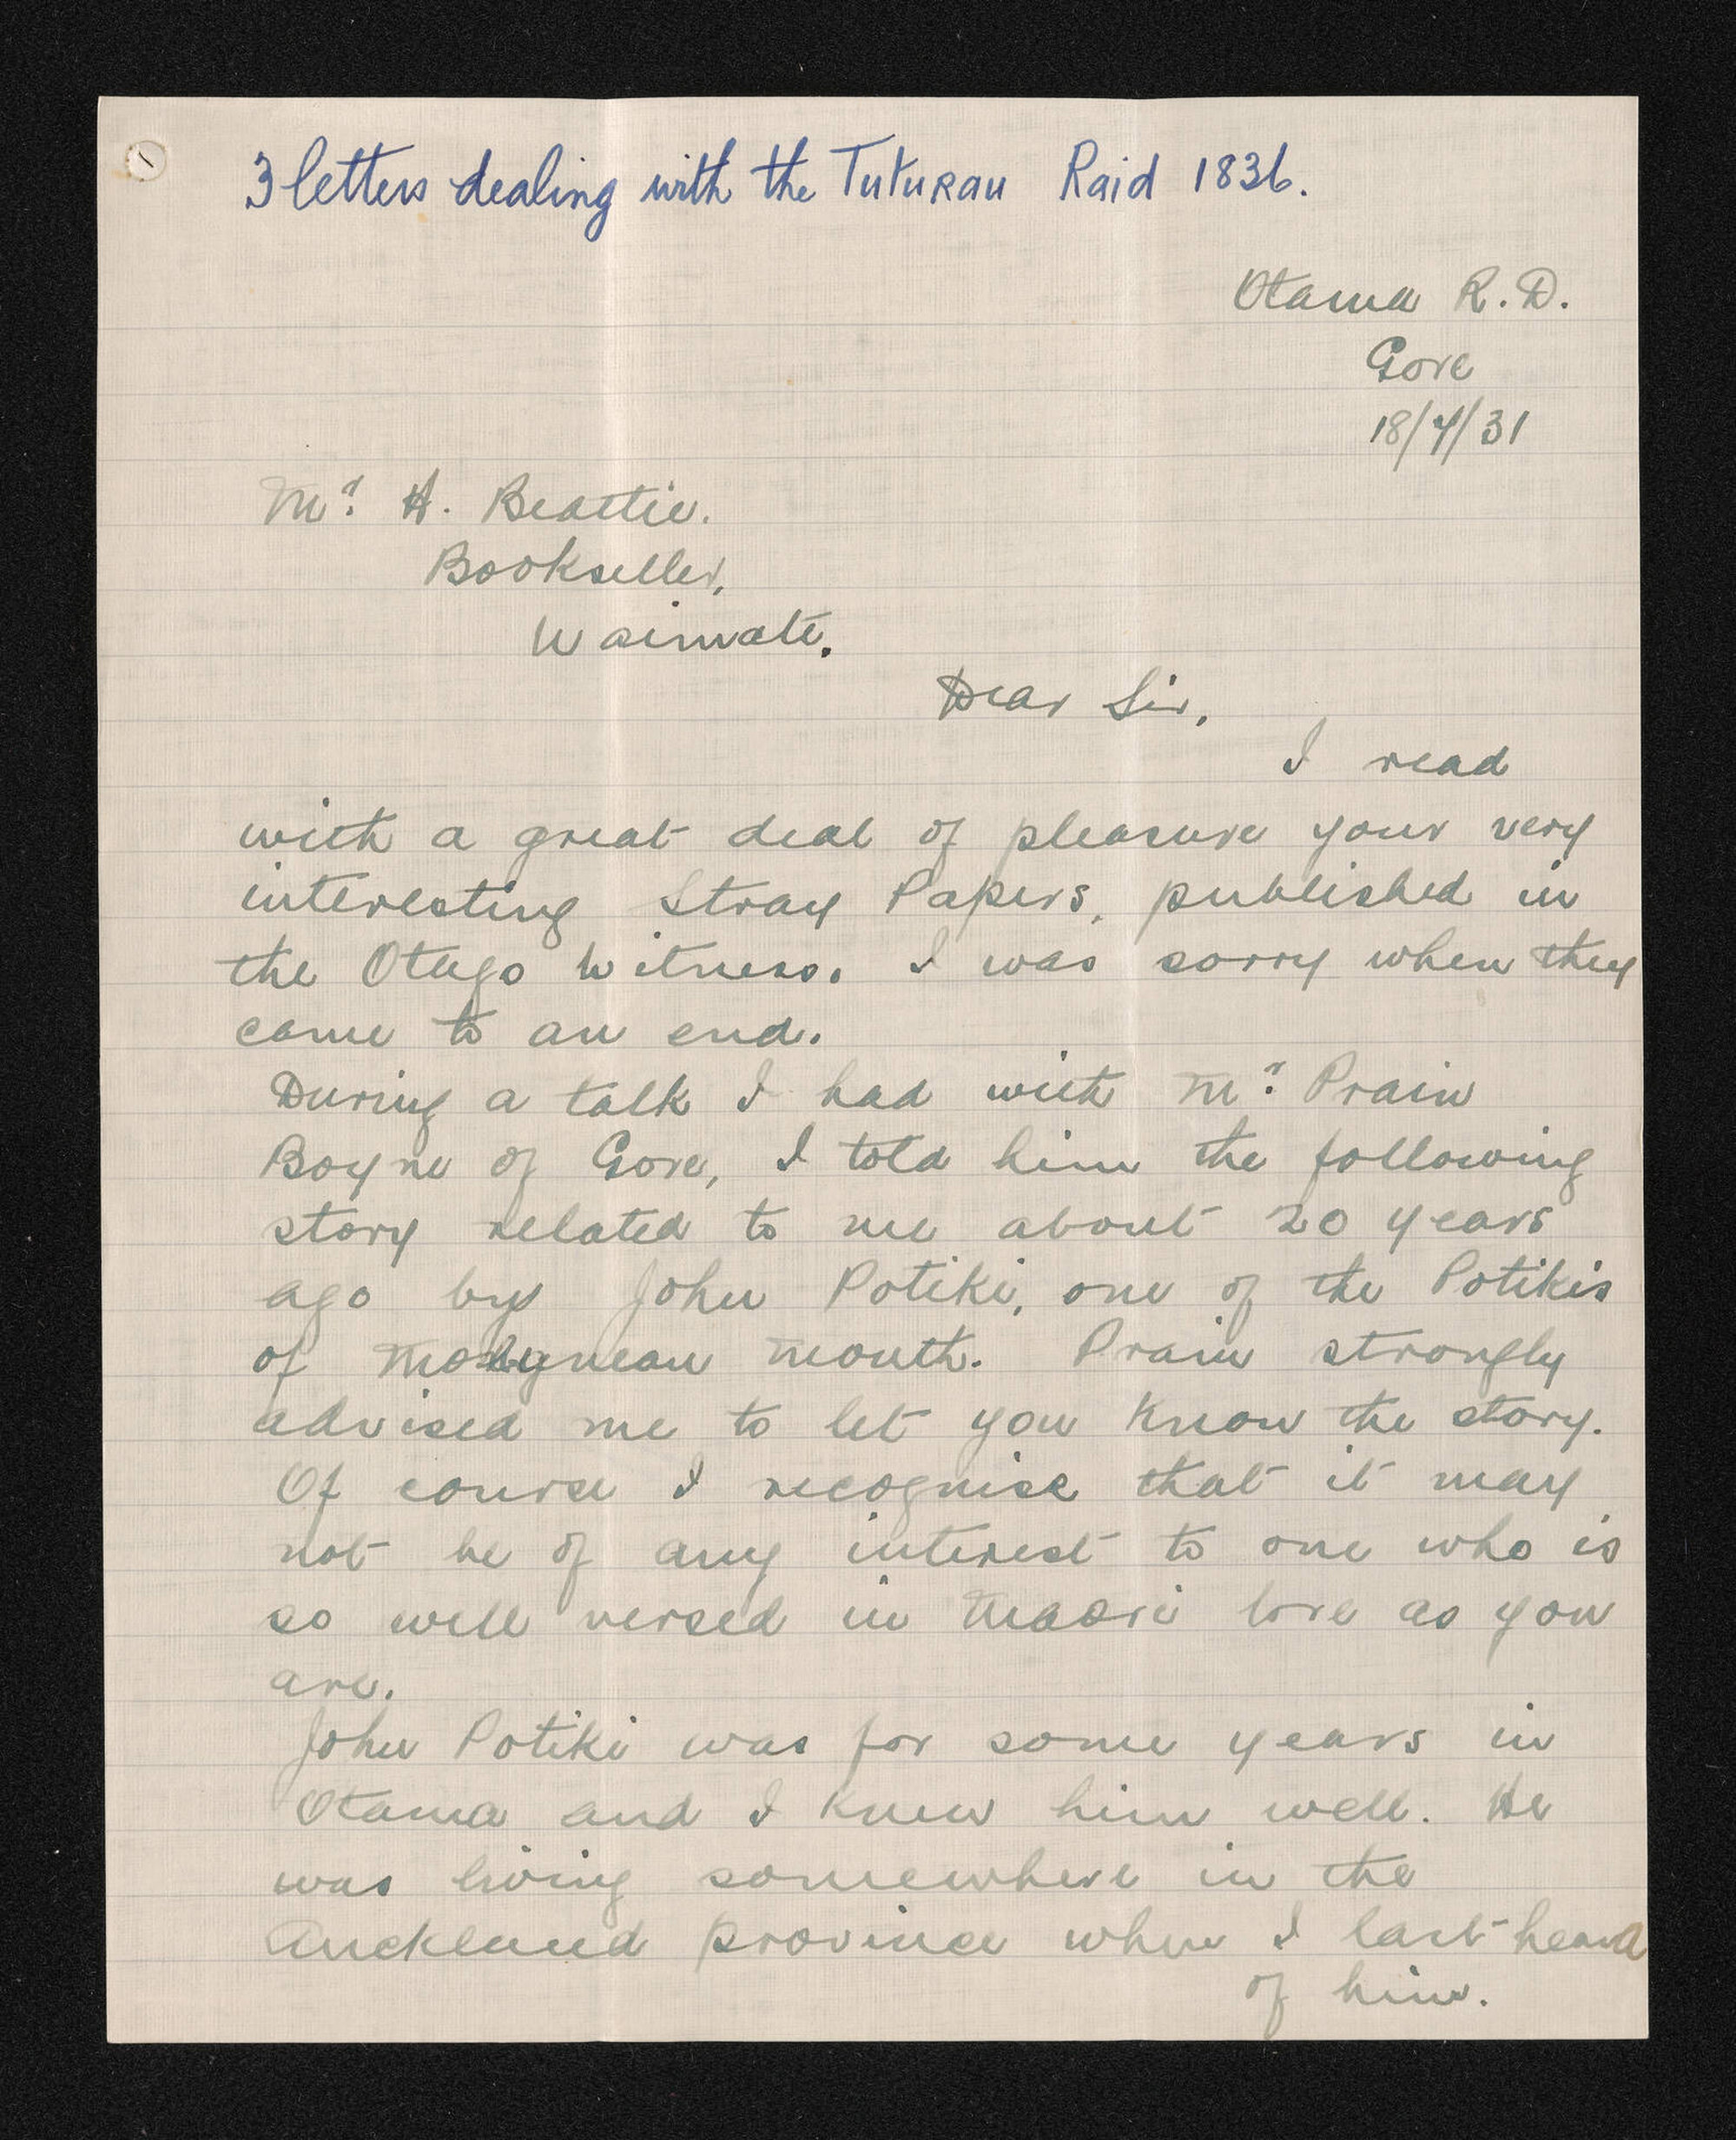 3 letters dealing with the Tuturau Raid 1836.
Otama R.D.
Gore
18/4/31
Mr. H. Beattie.
Bookseller,
Waimate.
Dear Sir,
I read
with a great deal of pleasure your very
interesting Stray Papers, published in
the Otago Witness. I was sorry when they
came to an end.
During a talk I had with Mr. Prain
Boyne of Gore, I told him the following
story related to me about 20 years
ago by John Potiki, one of the Potikis
of Molyneau Mouth. Prain strongly
advised me to let you know the story.
Of course I recognise that it may
not be of any interest to one who is
so well versed in Maori lore as you
are.
John Potiki was for some years in
Otama and I knew him well. He
was living somewhere in the
Auckland province when I last heard
of him.